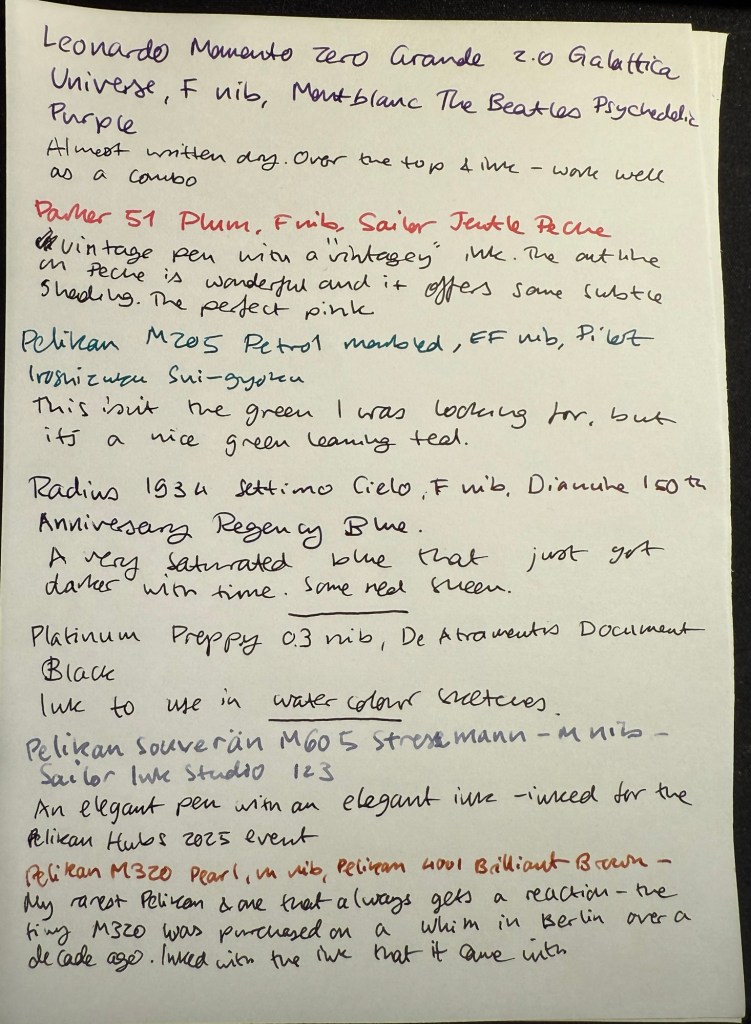 Leonardo Momento Zero Grande 2.0 Galattica
Universe, F nib, Montblanc The Beatles Psychedelic
Purple
Almost written dry. Over the top & ink – work well
as a combo
Parker 51 Plum, F nib, Sailor Jentle Peche
vintage pen with a "vintagey" ink. The outline
on Peche is wonderful and it offers some subtle
shading. The perfect pink
Pelikan M205 Petrol marbled, EF nib, Pilot
Iroshizuku Sui-gyoku
This isn't the green I was looking for, but
it's a nice green leaning teal.
Radius 1934 Settimo Cielo, F nib, Diamine 150th
Anniversary Regency Blue.
A very saturated blue that just got
darker with time. Some red sheen.
Platinum Preppy 0.3 nib, De Atramentis Document
Black
Ink to use in watercolour sketches.
Pelikan Souverän M605 Stresemann – M nib –
Sailor Ink Studio 123
An elegant pen with an elegant ink – inked for the
Pelikan Hubs 2025 event
Pelikan M320 Pearl, M nib, Pelikan 4001 Brilliant Brown –
My rarest Pelikan & one that always gets a reaction – the
tiny M320 was purchased on a whim in Berlin over a
decade ago. Inked with the ink that it came with